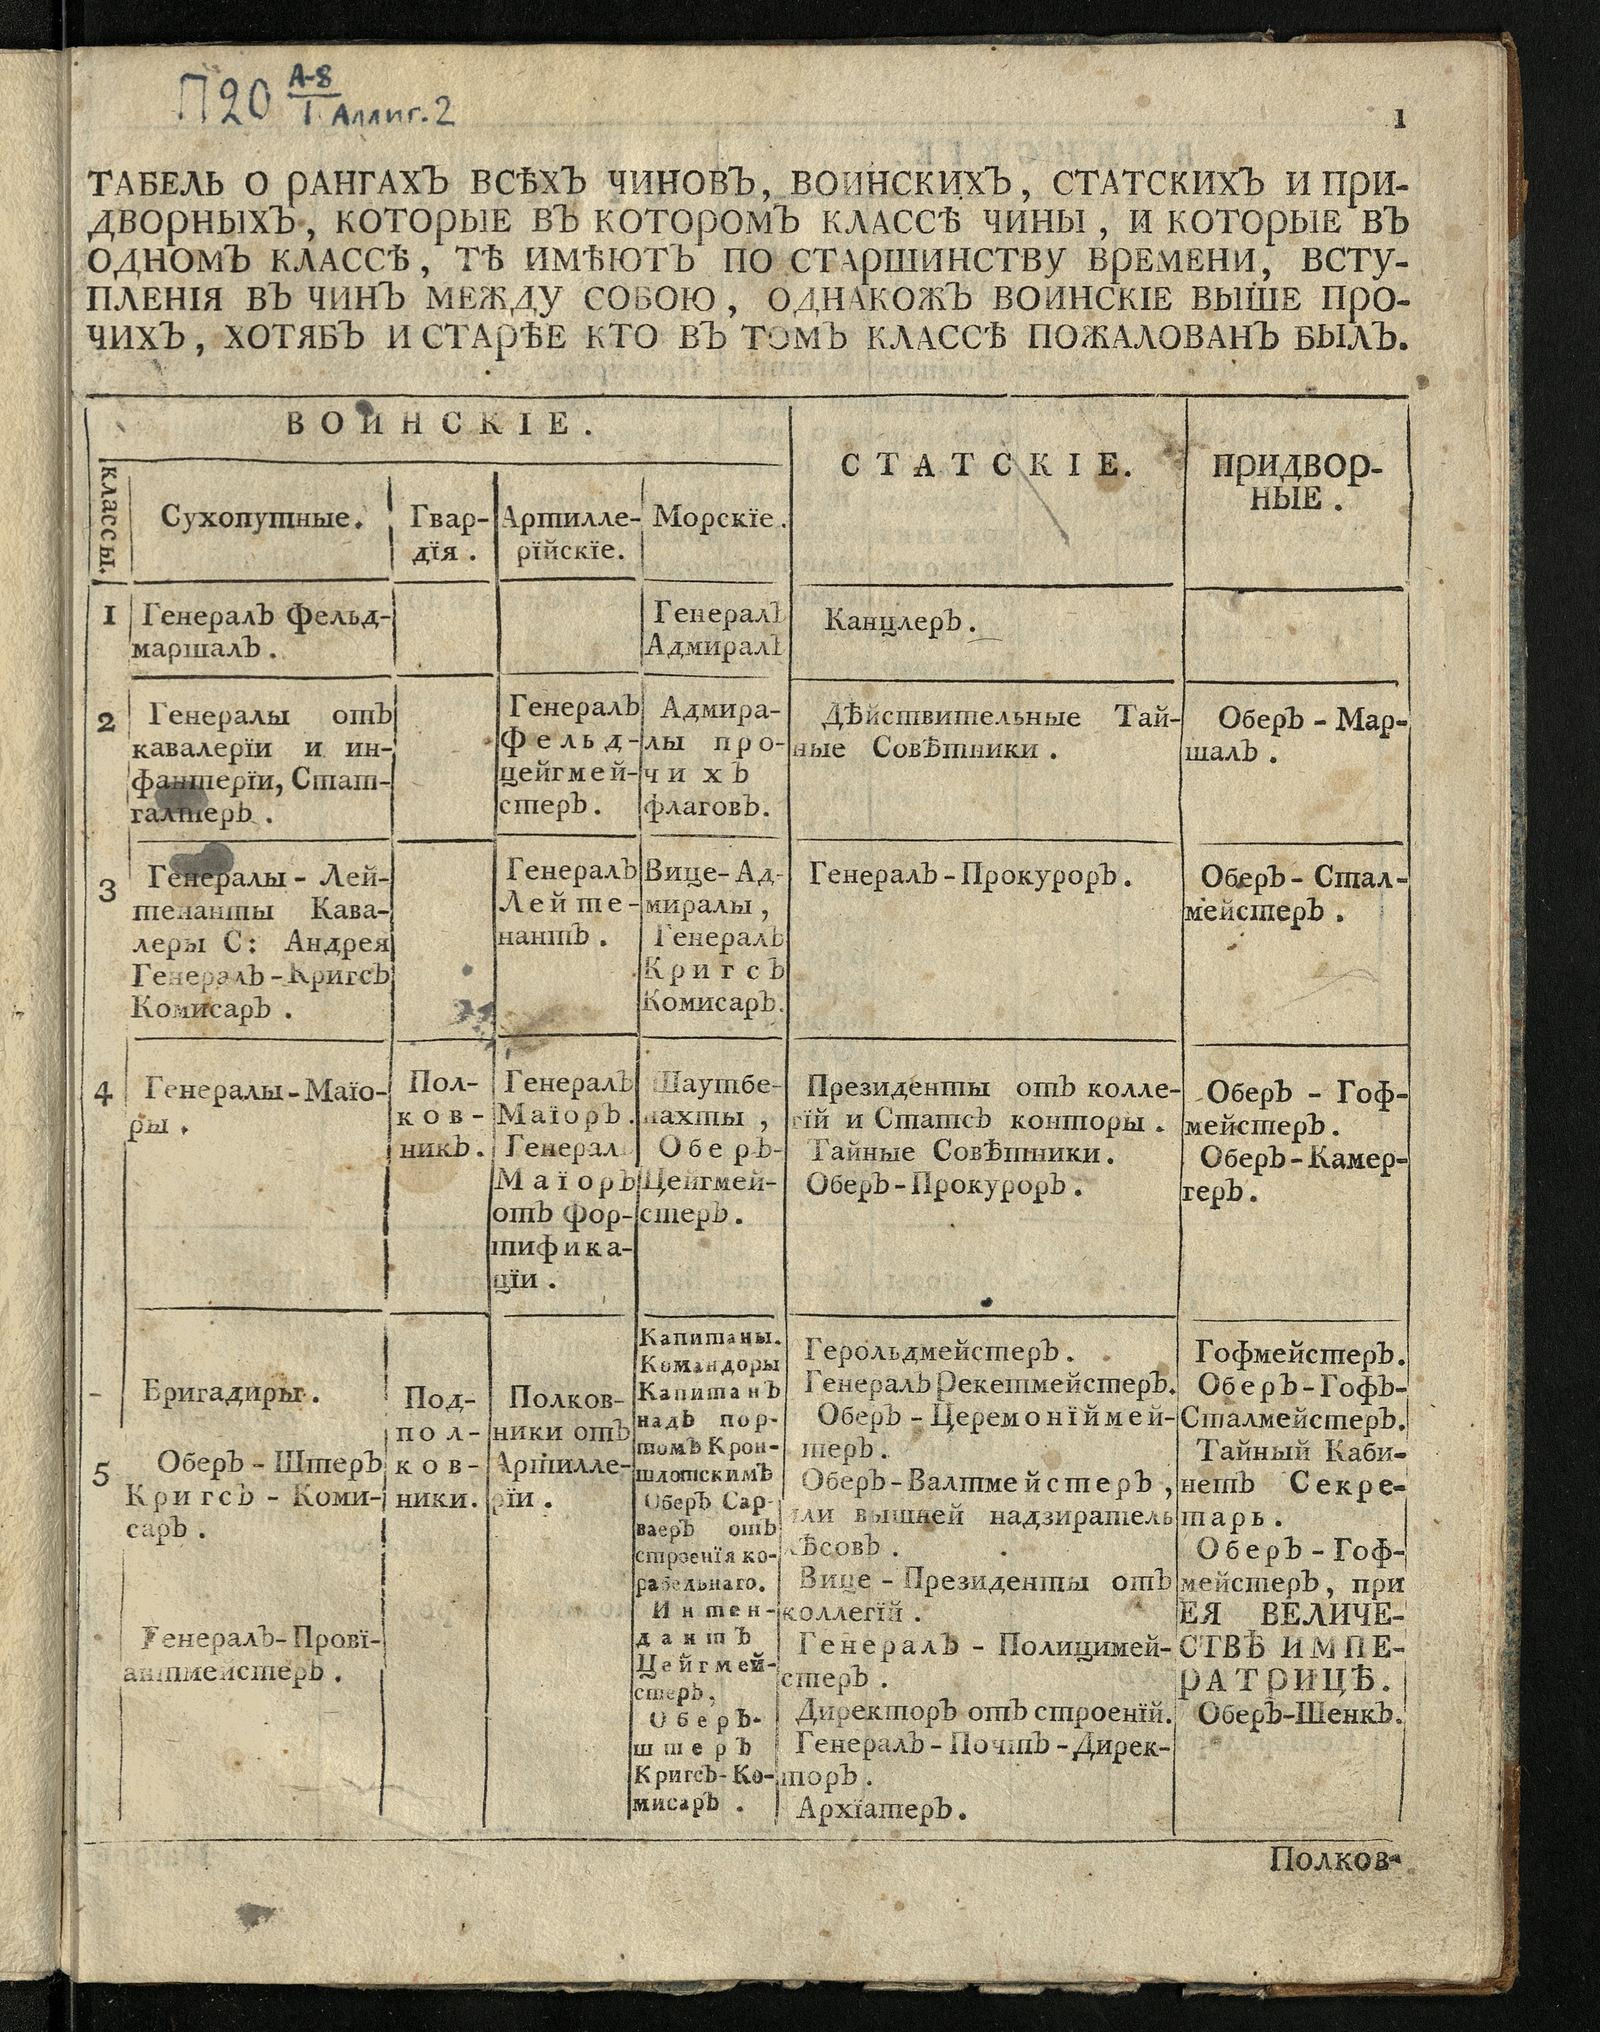 П20 А-8
1 Аллиг. 2
1
ТАБЕЛЬ О РАНГАХЪ ВСѢХЪ ЧИНОВЪ, ВОИНСКИХЪ, СТАТСКИХЪ И ПРИ-
ДВОРНЫХЪ, КОТОРЫЕ ВЪ КОТОРОМЪ КЛАССѢ ЧИНЫ, И КОТОРЫЕ ВЪ
ОДНОМЪ КЛАССѢ, ТѢ ИМѢЮТЪ ПО СТАРШИНСТВУ ВРЕМЕНИ, ВСТУ-
ПЛЕНІЯ ВЪ ЧИНЪ МЕЖДУ СОБОЮ, ОДНАКОЖЪ ВОИНСКІЕ ВЫШЕ ПРО-
ЧИХЪ, ХОТЯБЪ И СТАРѢЕ КТО ВЪ ТОМЪ КЛАССѢ ПОЖАЛОВАНЪ БЫЛЪ.
ВОИНСКІЕ.
СТАТСКІЕ.
ПРИДВОР-
НЫЕ.
КЛАССЫ.
Сухопутные.
Гвар-
дїя.
Артилле-
рїйскїе.
Морскїе.
1
Генералъ фельд-
маршалъ.
Генералъ
Адмиралъ
Канцлеръ.
2
Генералы отъ
кавалерїи и ин-
фантерїи, Стат-
галтеръ.
Генералъ
фельд-
цейгмей-
стеръ.
Адмира-
лы про-
чихъ
флаговъ.
Дѣйствительные Тай-
ные Совѣтники.
Оберъ-Мар-
шалъ.
3
Генералы-Лей-
тенанты Кава-
леры С: Андрея
Генералъ-Кригсъ
Комисаръ.
Генералъ
Лейте-
нантъ.
Вице-Ад-
миралы,
Генералъ
Кригсъ
Комисаръ.
Генералъ-Прокуроръ.
Оберъ-Стал-
мейстеръ.
4
Генералы-Маїо-
ры.
Пол-
ков-
никъ.
Генералъ
Маїоръ.
Генерал
Маїоръ
отъ фор-
тифика-
цїи.
Шаутбе-
нахты,
Оберъ-
Цейгмей-
стеръ.
Президенты отъ колле-
гїй и Статсъ конторы.
Тайные Совѣтники.
Оберъ-Прокуроръ.
Оберъ-Гоф-
мейстеръ.
Оберъ-Камер-
геръ.
5
Бригадиры.
Оберъ-Штеръ
Кригсъ-Коми-
саръ.
Генералъ-Провї-
антмейстеръ.
Под-
пол-
ков-
ники.
Полков-
ники отъ
Артилле-
рїи.
Капитаны.
Командоры
Капитанъ
надъ пор-
томъ Крон-
шлотскимъ
Оберъ Сар-
ваеръ отъ
строенїя ко-
рабельнаго.
Интен-
дантъ
Цейгмей-
стеръ,
Оберъ-
штеръ
Кригсъ-Ко-
мисаръ.
Герольдмейстеръ.
Генералъ Рекетмейстеръ.
Оберъ-Церемонїймей-
теръ.
Оберъ-Валтмейстеръ,
или вышней надзиратель
лѣсовъ.
Вице-Президенты отъ
коллегїй.
Генералъ-Полицимей-
стеръ.
Директоръ отъ строенїй.
Генералъ-Почтъ-Дирек-
торъ.
Архїатеръ.
Гофмейстеръ.
Оберъ-Гофъ-
Сталмейстеръ.
Тайный Каби-
нетъ Секре-
тарь.
Оберъ-Гоф-
мейстеръ, при
ЕЯ ВЕЛИЧЕ-
СТВѢ ИМПЕ-
РАТРИЦѢ.
Оберъ-Шенкъ.
Полков-